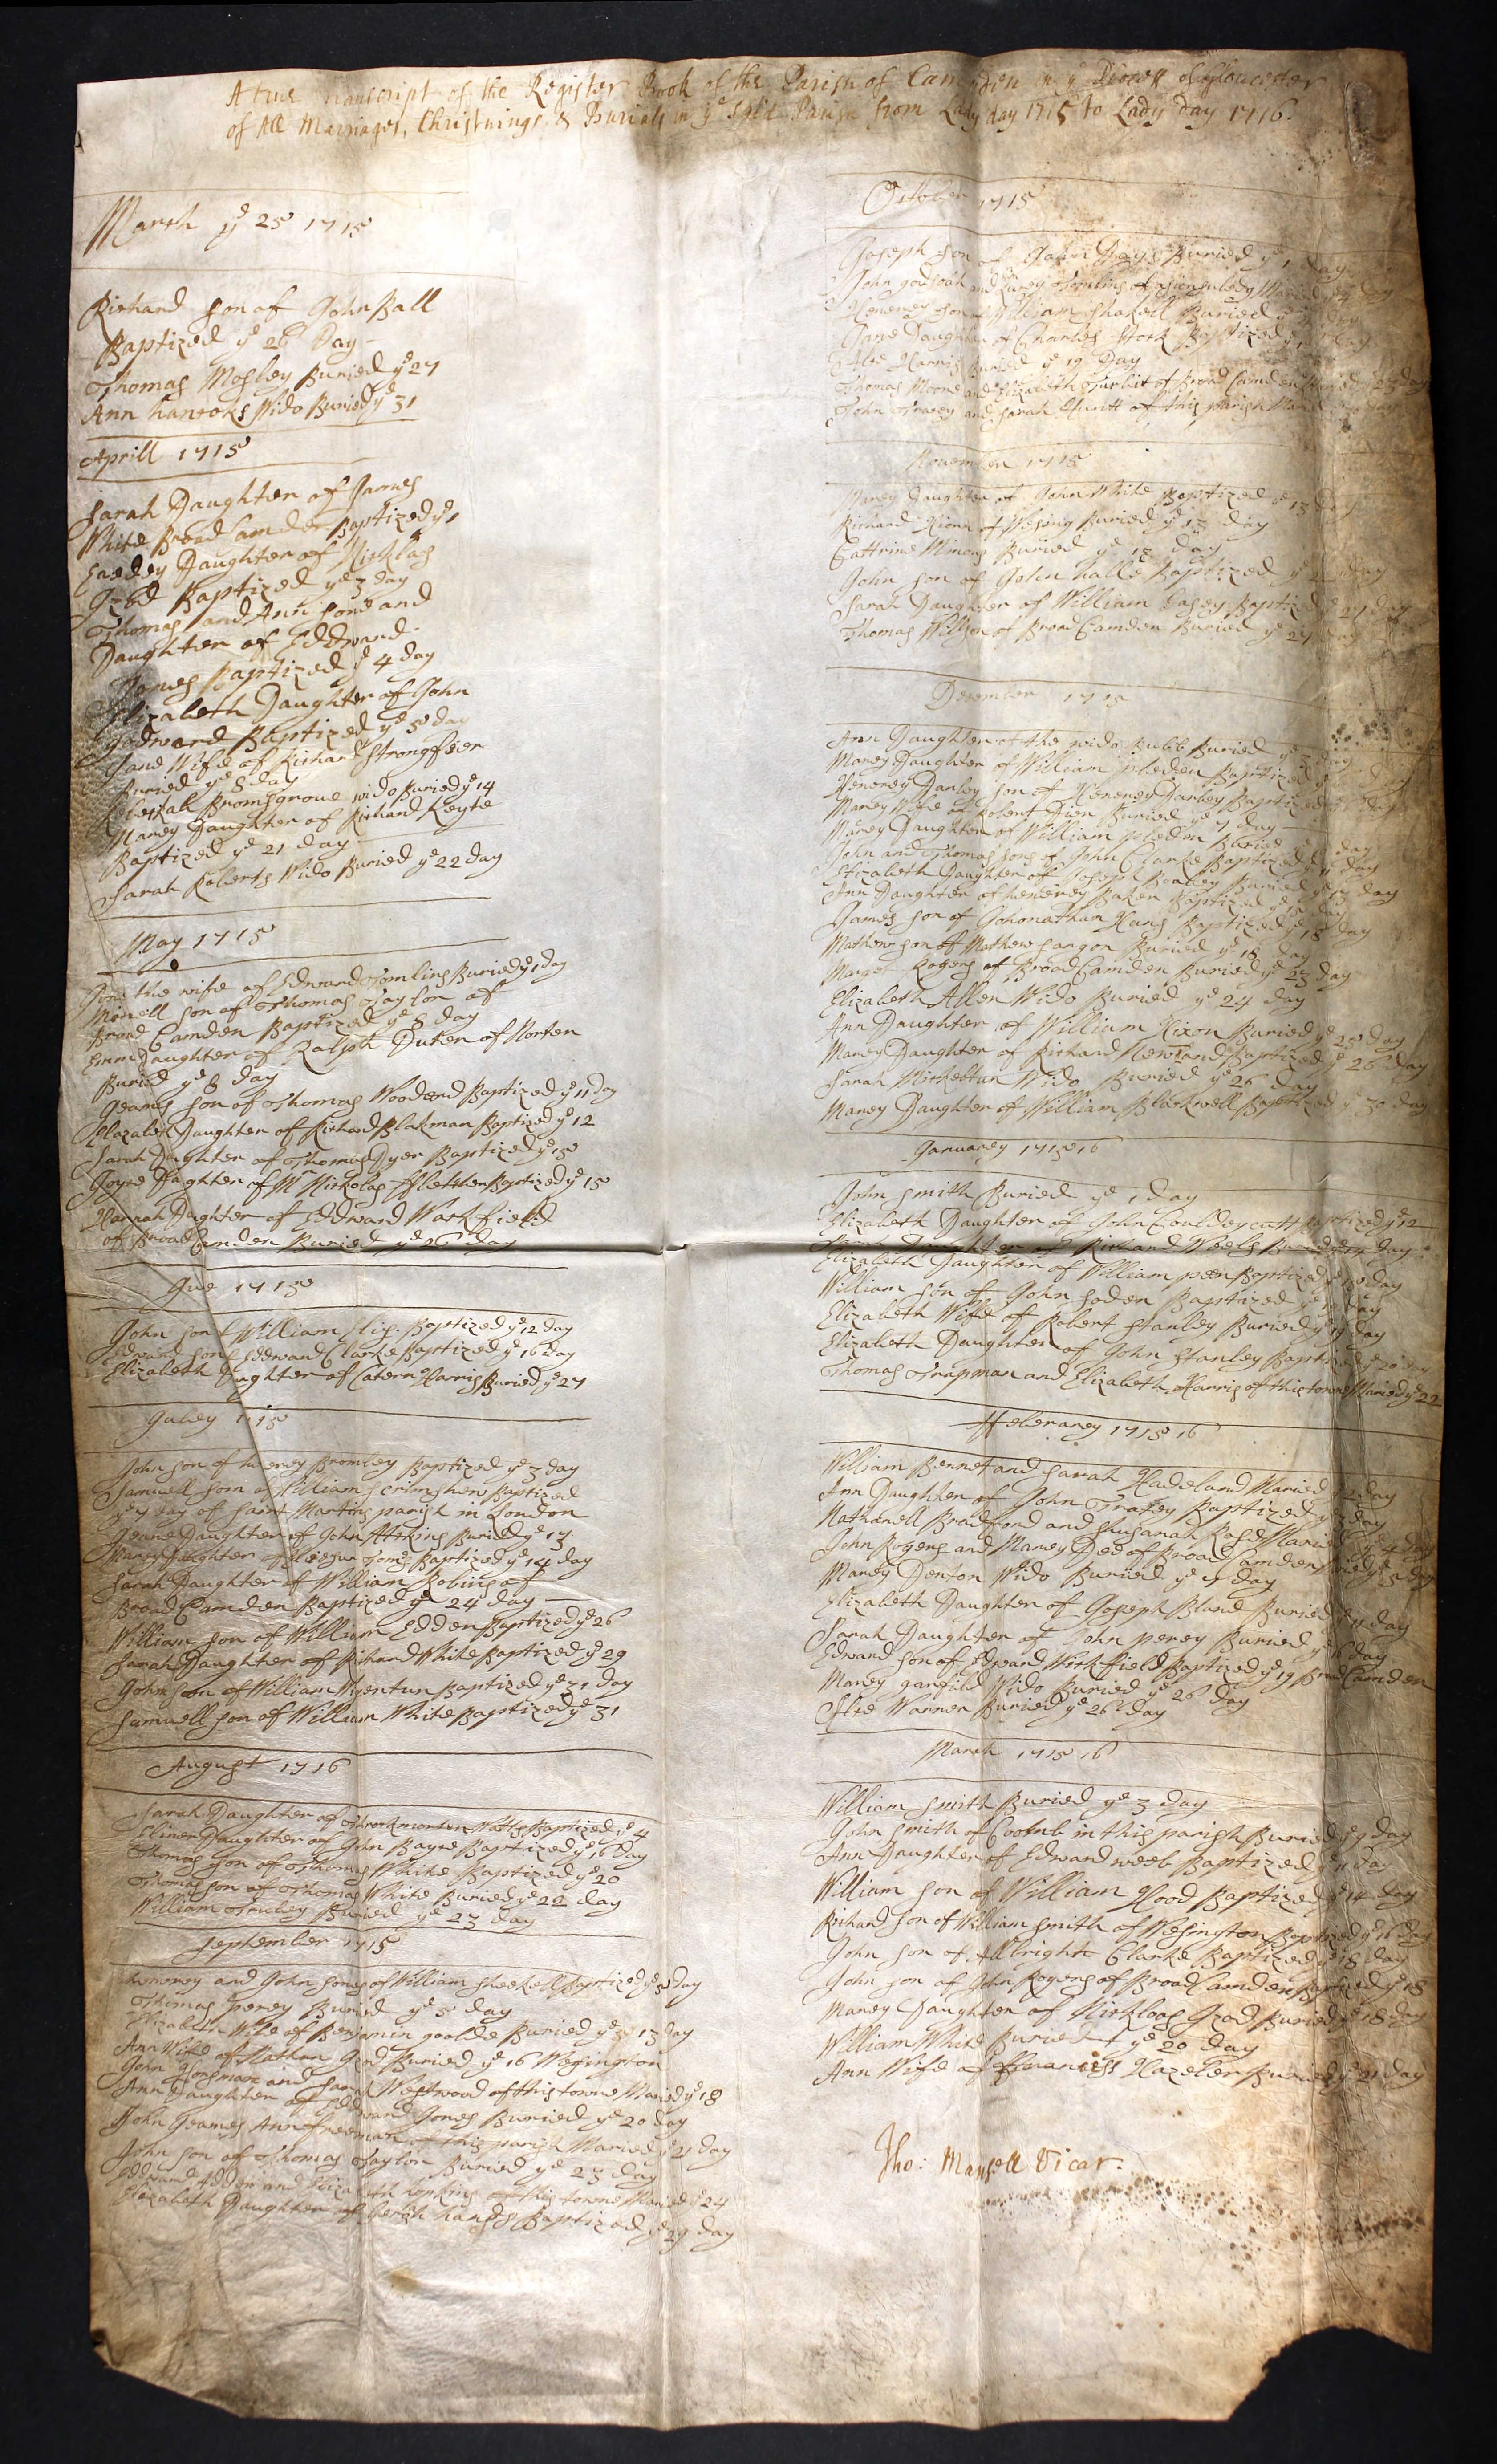 A true transcript of the Register Book of the Parish of Camden in ye Diocess of Gloucester
of All Marriages, Christnings, & Burials in ye said Parish from Lady day 1715 to Lady Day 1716.
March ye 25 1715
Richard son of John Ball
Baptized ye 26 Day
Thomas Mosley Buried ye 27
Ann hancoks Wido Buried ye 31
Aprill 1715
Sarah Daughter of James
White Broad Camden Baptized ye 1
Daughter of Nicklas
Baptized ye 3 day
Thomas and Ann sone and
Daughter of Eddward
James Baptized ye 4 day
Elizabeth Daughter of John
Godward Baptized ye 5 day
Jane Wife of Richard
Buried ye 8 day
Bromsgroue wido Buried ye 14
Marey Daughter of Richard Keyte
Baptized ye 21 day
Sarah Roberts Wido Buried ye 22 day
May 1715
the wife of Edward Tomlins Buried ye 1 day
son of Thomas Taylor of
Broad Camden Baptized ye 8 day
Daughter of Ralph Duten of Norten
Buried ye 8 day
Jeames son of Thomas Woodard Baptized ye 11 day
Daughter of Richard Blakman Baptized ye 12
Sarah Daughter of Thomas Dyer Baptized ye 15
Joyce Daghter of Mr Nickolas ffletcher Baptized ye 15
Hannah Daghter of Eddward Warkfield
of Broad Camden Buried ye 26 day
Jue 1715
John son of William Baptized ye 12 day
Edward son of Eddward Clarke Baptized ye 16 day
Elizabeth Daghter of Catern Harris Buried ye 27
Juley 1715
John son of henerey Bromley Baptized ye 3 day
Samuell son of William Scrimshew Baptized
ye 7 day of saint Martins parish in London
Jeane Daughter of John Attkins Buried ye 13
Marey Daughter of Baptized ye 14 day
Sarah Daughter of William Robins of
Broad Camden Baptized ye 24 day
William son of William Edden Baptized ye 26
Sarah Daughter of Richard White Baptized ye 29
John son of William Baptized ye 31 day
Samuell son of William White Baptized ye 31
August 1716
Sarah Daughter of Throckmorten Watts Baptized ye 4
Eliner Daughter of John Bayse Baptized ye 16 day
Thomas son of Thomas White Baptized ye 20
Thomas son of Thomas White Buried ye 22 day
William Buried ye 23 day
September 1715
henerey and John sones of William sheekell Baptized ye 5 day
Thomas perey Buried ye 5 day
Elizabeth Wife of Benjamin goolde Buried ye 13 day
Ann Wife of Nathan Buried ye 16 Wesington
John and Sarah Westwood of this towne Maried ye 18
Ann Daughter of Eddward Jones Buried ye 20 day
John Jeames Ann freeman of this parish Maried ye 21 day
John son of Thomas Taylor Buried ye 23 day
Eddward and Elizabeth hopkins of this towne Maried ye 24
Elizabeth Daughter of hands Baptized ye 29 day
October 1715
Joseph son of Days Buried ye 1 day
John and Marey Tomlins of Maried ye day
Henerey son of William shakell Buried ye day
Jane Daughter of Charles Hock Baptized ye day
Alce Harris Buried ye 19 Day
Thomas Moone and Elizabeth of Broad Camden Maried ye 23 day
John Tracey and Sarah of this parish Maried day
November 1715
Marey daughter of John White Baptized ye 13 day
Richard of Wesing Buried ye 13 day
Cattrine Buried ye 18 day
John son of John halle Baptized ye 22 day
Sarah Daughter of William Casey Baptized ye 27 day
Thomas Willson of Broad Camden Buried ye 27 day
December 1715
Ann Daughter of the wido Bubb Buried ye 3 day
Marey Daughter of William pleden Baptized ye day
Henerey Danbey son of Henerey Danbey Baptized ye day
Marey Wife of Robert Dier Buried ye 7 day
Marey Daughter of William pleden Buried ye day
John and Thomas sons of John Clarke Baptized ye 11 day
Elizabeth Daughter of Joseph Buried ye 13 day
Ann Daughter of henerey Baker Baptized ye 15 day
James son of Johonathan Hans Baptized ye 18 day
Mathew son of Mathew Buried ye 18 day
Marget Rogers of Broad Camden Buried ye 23 day
Elizabeth Allen Wido Buried ye 24 day
Ann Daughter of William Hixon Buried ye 25 day
Marey Daughter of Richard Newland Baptized ye 26 day
Sarah Wido Buried ye 26 day
Marey Daughter of William Blackwell Baptized ye 30 day
Januarey 1715 16
John smith Buried ye 1 day
Elizabeth Daughter of John Couldeycutt Baptized ye 12
Daughter of Richard Weels Buried ye 14 day
Elizabeth Daughter of William peen Baptized ye 15 day
William son of John soden Baptized ye day
Elizabeth Wife of Robert Stanley Buried ye 19 day
Elizabeth Daughter of John Stanley Baptized ye 20 day
Thomas Trapman and Elizabeth Harris of this towne Maried ye 22
ffeberarey 1715 16
William Bennet and Sarah Hadeland Maried ye 2 day
Ann Daughter of John Tracey Baptized ye 3 day
Nathanell Bradford and Shusanah Maried ye 4 day
John Rogers and Marey Dee of Broad Camden Maried ye 5 day
Marey Denton Wido Buried ye 7 day
Elizabeth Daughter of Joseph Bland Buried ye 11 day
Sarah Daughter of John perey Buried ye 16 day
Edward son of Edward Workffield Baptized ye 19 Broad Camden
Marey ganfild Wido Buried ye 26 day
Alce Warner Buried ye 26 day
March 1715 16
William smith Buried ye 3 day
John smith of Coomb in this parish Buried ye 9 day
Ann Daughter of Edward weeb Baptized ye 11 day
William son of William Hood Baptized ye 14 day
Richard son of William smith of Wesington Baptized ye 16 day
John son of Allright Clarke Baptized ye 18 day
John son of John Rogers of Broad Camden Baptized ye 18
Marey Daughter of Nickloas Buried ye 18 day
William White Buried ye 20 day
Ann Wife of ffranciss Hazeler Buried ye 21 day
Tho: Mansell Vicar.